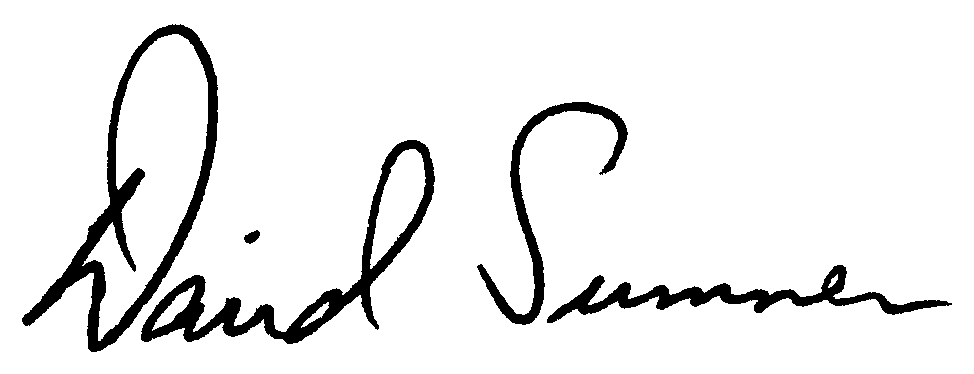 David Sumner